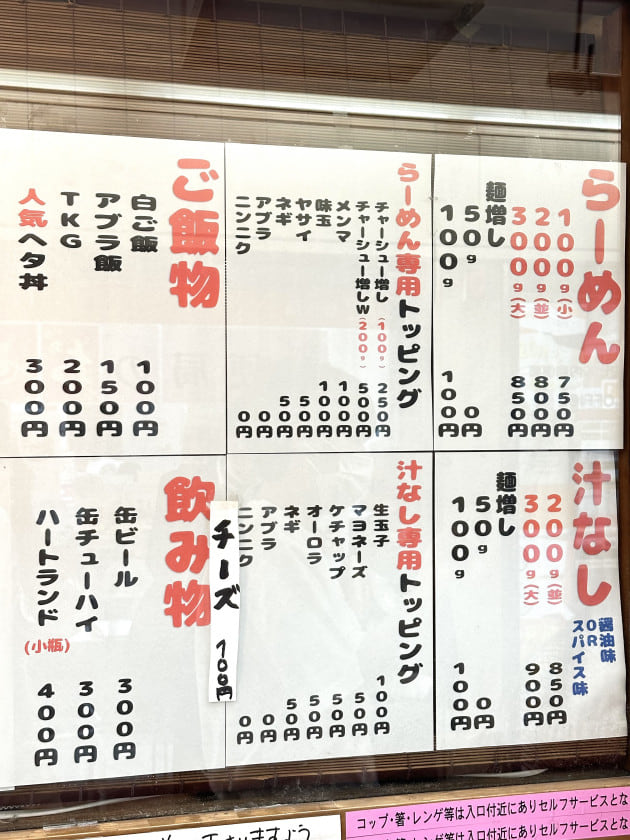 らーめん
100g(小) 750円
200g(並) 800円
300g(大) 850円
麺増し
50g 0円
100g 100円
らーめん専用トッピング
チャーシュー増し(100g) 250円
チャーシュー増しW(200g) 500円
メンマ 100円
味玉 100円
ヤサイ 50円
ネギ 50円
アブラ 0円
ニンニク 0円
ご飯物
白ご飯 100円
アブラ飯 150円
TKG 200円
人気ヘタ丼 300円
汁なし
醤油味
OR
スパイス味
200g(並) 850円
300g(大) 900円
麺増し
50g 0円
100g 100円
汁なし専用トッピング
生玉子 100円
マヨネーズ 50円
ケチャップ 50円
オーロラ 50円
ネギ 50円
アブラ 0円
ニンニク 0円
チーズ 100円
飲み物
缶ビール 300円
缶チューハイ 300円
ハートランド(小瓶) 400円
コップ・箸・レンゲ等は入口付近にありセルフサービスとな